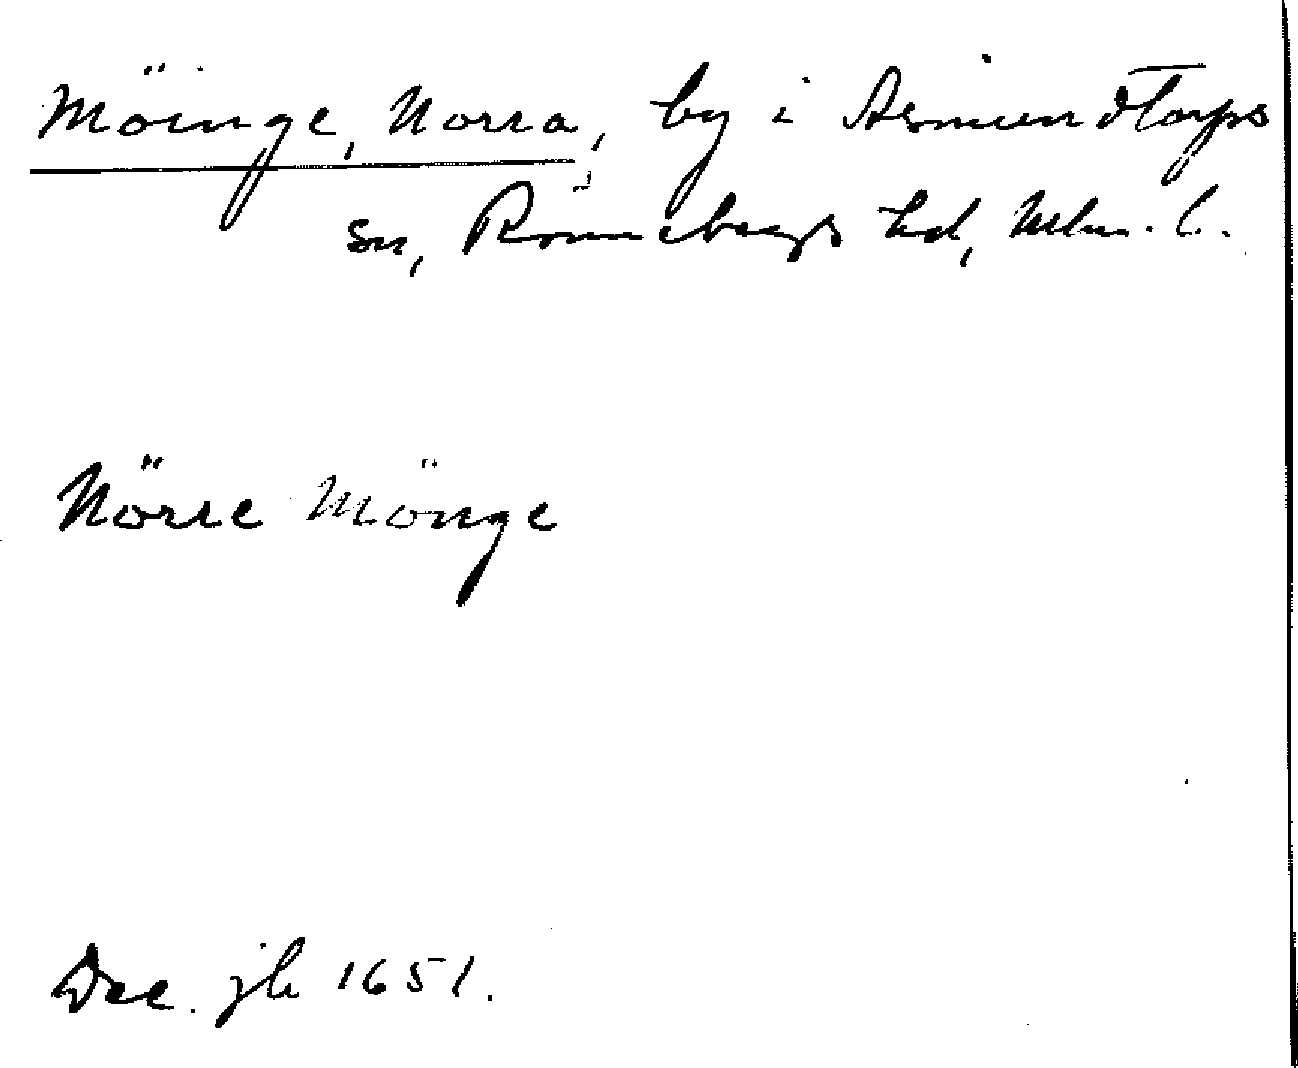 Möinge, Norra, by i Asmundtorps
sn, Rönnebergs hd, Mlm. l.
Nörre Mönge
Dec. jb 1651.